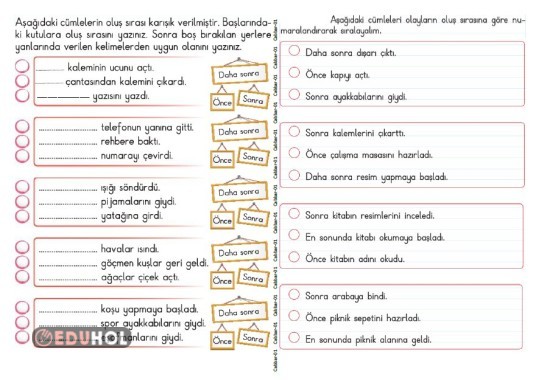 Aşağıdaki cümlelerin oluş sırası karışık verilmiştir. Başlarında-
ki kutulara oluş sırasını yazınız. Sonra boş bırakılan yerlere
yanlarında verilen kelimelerden uygun olanını yazınız.
.............. kaleminin ucunu açtı.
............. çantasından kalemini çıkardı.
____________ yazısını yazdı.
Daha sonra
Önce
Sonra
........................ telefonun yanına gitti.
........................ rehbere baktı.
........................ numarayı çevirdi.
Daha sonra
Önce
Sonra
........................ ışığı söndürdü.
........................ pijamalarını giydi.
........................ yatağına girdi.
Daha sonra
Önce
Sonra
........................ havalar ısındı.
........................ göçmen kuşlar geri geldi.
........................ ağaçlar çiçek açtı.
Daha sonra
Önce
Sonra
........................ koşu yapmaya başladı.
........................ spor ayakkabılarını giydi.
giydi.
Daha sonra
Önce
Sonra
EDUHOL
Calibar-01
Calibar-01
Calibar-01
Calibar-01
Calibar-01
Calibar-01
Calibar-01
Calibar-01
Calibar-01
Aşağıdaki cümleleri olayların oluş sırasına göre nu-
maralandırarak sıralayalım.
Daha sonra dışarı çıktı.
Önce kapıyı açtı.
Sonra ayakkabılarını giydi.
Sonra kalemlerini çıkarttı.
Önce çalışma masasını hazırladı.
Daha sonra resim yapmaya başladı.
Sonra kitabın resimlerini inceledi.
En sonunda kitabı okumaya başladı.
Önce kitabın adını okudu.
Sonra arabaya bindi.
Önce piknik sepetini hazırladı.
En sonunda piknik alanına geldi.